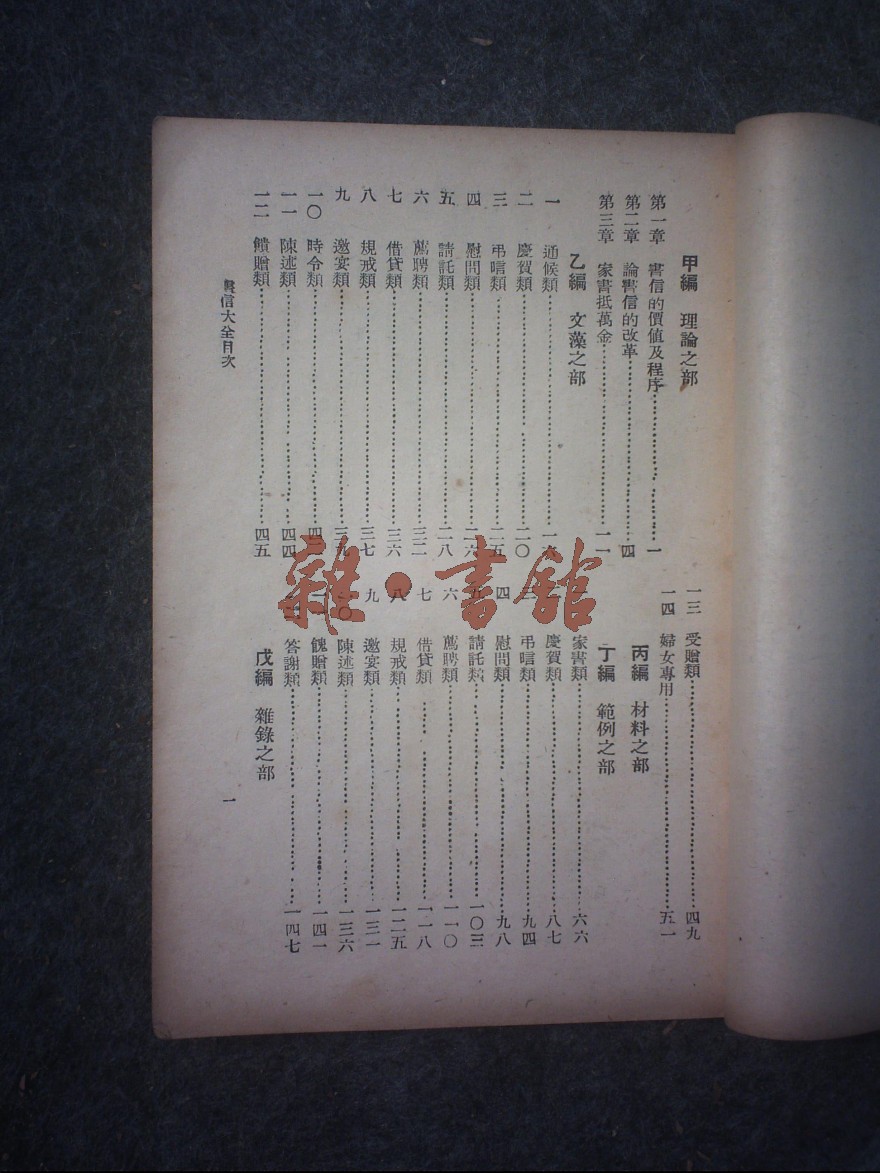 甲編　理論之部
第一章　書信的價值及程序……一
第二章　論書信的改革……四
第三章　家書抵萬金……一一
乙編　文藻之部
一　通候類……一
二　慶賀類……二〇
三　弔唁類……二五
四　慰問類……二六
五　請託類……二八
六　薦聘類……三二
七　借貸類……三六
八　規戒類……三七
九　邀宴類……三九
一〇　時令類……四
一一　陳述類……四四
一二　饋贈類……四五
書信大全目次
一三　受贈類……四九
一四　婦女專用……五一
丙編　材料之部
丁編　範例之部
家書類……六六
慶賀類……八七
弔唁類……九四
四　慰問類……九八
請託類……一〇三
六　薦聘類……一一〇
七　借貸類……一一八
八　規戒類……一二五
九　邀宴類……一三一
陳述類……一三六
餽贈類……一四一
答謝類……一四七
戊編　雜錄之部
一
雜·書館